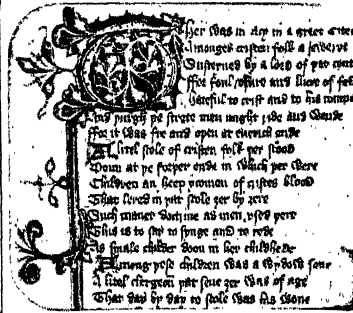 Ther was in asy in a greet Cite
Amonges cristen folk a jewerye
Susteened by a lord of þat contr
ffor foul vsure and lucre of fel
hateful to crist and to his compai
And þurgh þe strete men might ride and wende
ffor it was fre and open at euerich ende
A litel scole of cristen folk þer stood
Doun at þe forþer ende in which þer were
Children an heep ycomen of cristes blood
That lered in þat scole ȝer by ȝere
Such maner doctrine as men vsed þere
This is to say to synge and to rede
As smale childer doon in her childhede
Among þese children was a wydow sone
A litel clergeoun þat seue ȝer was of age
That day by day to scole was his wone